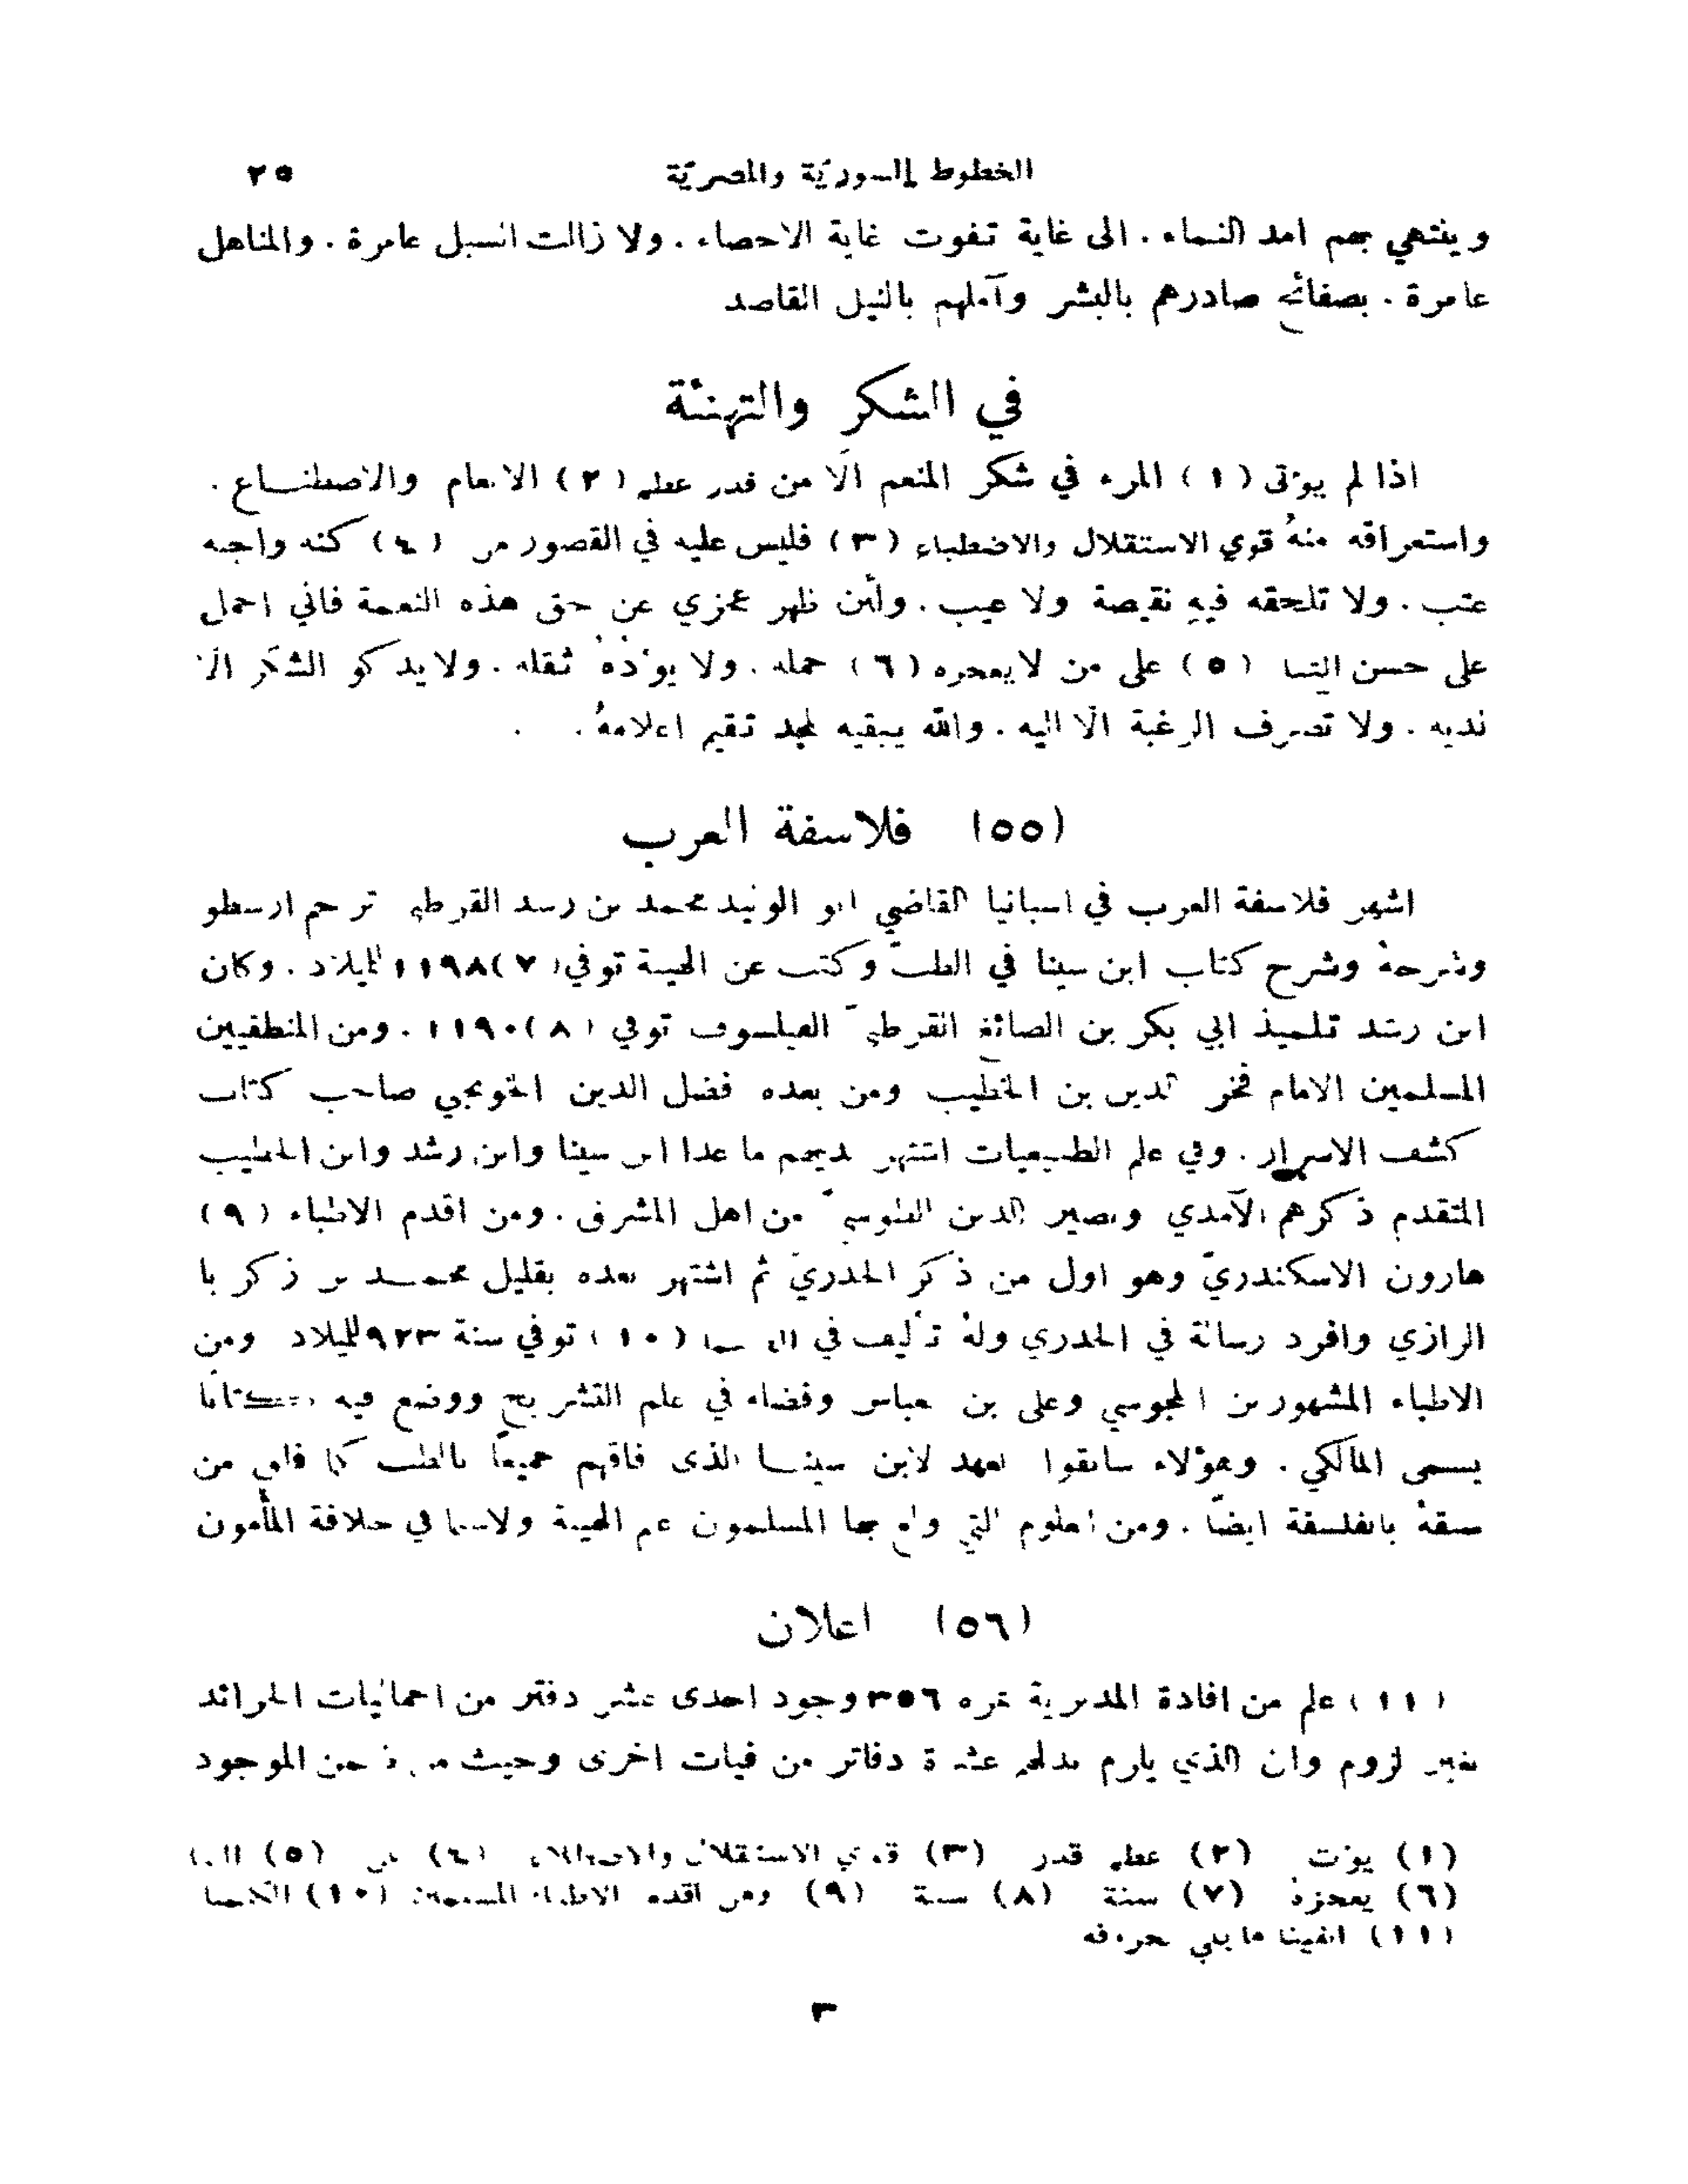 الخطوط السوريّة والمصريّة
٢٥
وينتهي بهم امد النماء . الى غاية تفوت غاية الاحصاء . ولا زالت السبل عامرة . والمناهل
عامرة . بصفائح صادرهم بالبشر وآملهم بالنيل القاصد
في الشكر والتهنئة
اذا لم يؤتى (١) المرء في شكر المنعم الّا من قدر عظم (٢) الانعام والاصطنـاع .
واستغراقه منهُ قوي الاستقلال والاضطباء (٣) فليس عليه في القصور من (٤) كنه واجبه
عتب . ولا تلحقه فيهِ نقيصة ولا عيب . ولئن ظهر عجزي عن حق هذه النعمة فاني احمل
على حسن (٥) على من لا يعجره (٦) حمله . ولا يؤدهُ ثقله . ولا يدكو الشكر الّا
نديه . ولا تصرف الرغبة الّا اليه . والله يبقيه لمجد تقيم اعلامهُ .
(٥٥) فلاسفة العرب
اشهر فلاسفة العرب في اسبانيا القاضي ابو الوليد محمد بن رشد القرطبي ترجم ارسطو
وشرحهُ وشرح كتاب ابن سينا في الطبّ وكتب عن الهيئة توفي (٧) ١١٩٨ للميلاد . وكان
ابن رشد تلميذ ابي بكر بن الصائغ القرطبيّ الفيلسوف توفي (٨) ١١٩٠ . ومن المنطقيين
المسلمين الامام فخر الدين بن الخطيب ومن بعده فضل الدين الخونجي صاحب كتاب
كشف الاسرار . وفي علم الطبيعيات اشتهر لديهم ما عدا ابن سينا وابن رشد وابن الخطيب
المتقدم ذكرهم الآمدي ونصير الدين الطوسيّ من اهل المشرق . ومن اقدم الاطباء (٩)
هارون الاسكندريّ وهو اول من ذكر الجدريّ ثم اشتهر بعده بقليل محمـد بن زكريا
الرازي وافرد رسالة في الجدري ولهُ تآليف في (١٠) توفي سنة ٩٢٣ للميلاد ومن
الاطباء المشهورين المجوسي وعلى بن عباس وفضله في علم التشريح ووضع فيه كتابًا
يسمى المالكي . وهؤلاء سابقوا لعهد لابن سينـا الذى فاقهم جميعًا بالطب كما فاق من
سبقهُ بالفلسفة ايضًا . ومن العلوم التي ولع بها المسلمون علم الهيئة ولاسيما في خلافة المأمون
(٥٦) اعلان
(١١) علم من افادة المديرية نمره ٣٥٦ وجود احدى عشر دفتر من اجماليات الجرائد
بغير لزوم وان الذي يلزم بدلهم عشرة دفاتر من فيات اخرى وحيث من الموجود
(١) يؤت (٢) عظم قدر (٣) قوى الاستقلال والاضطلاع (٤) عن (٥)
(٦) يعجزهُ (٧) سنة (٨) سنة (٩) ومن اقدم الاطباء المسلمين (١٠) الكيميا
(١١) الفينا ما يلي بحروفه
٣